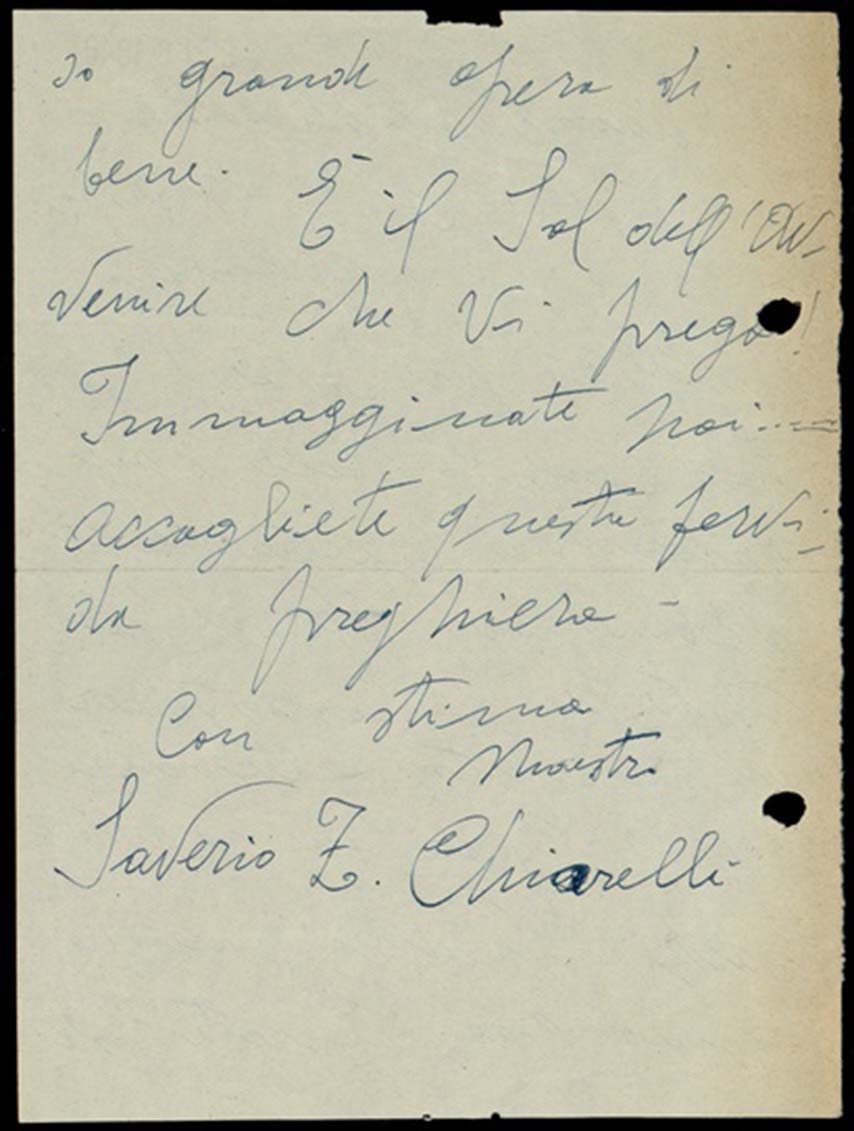 so grande opera di
bene. È il Sol dell'Av-
venire che Vi prega!
Immagginate poi....=
accogliete questa fervi-
da preghiera -
Con stima
Maestro
Saverio Z. Chiarelli